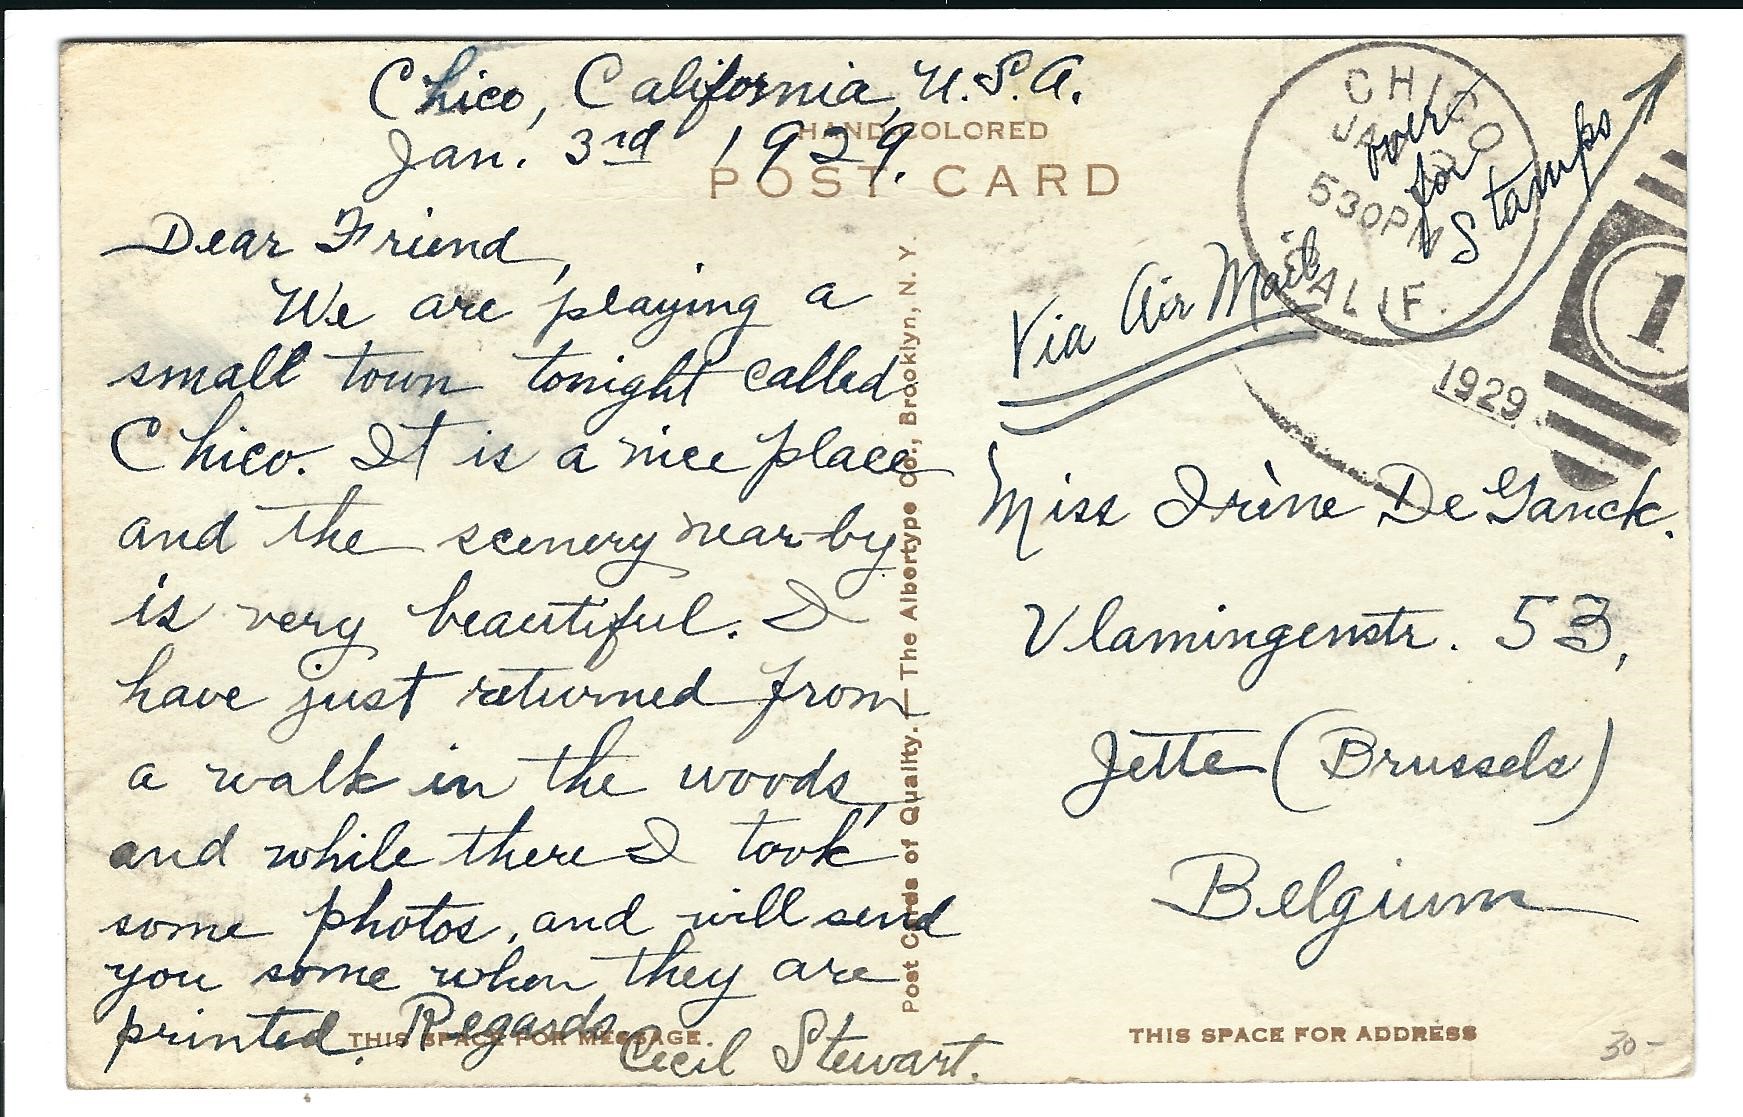 Chico, California, U.S.A.
Jan. 3rd 1929.
HAND-COLORED
POST CARD
Dear Friend,
We are playing a
small town tonight called
Chico. It is a nice place
and the scenery near-by
is very beautiful. I
have just returned from
a walk in the woods,
and while there I took
some photos, and will send
you some when they are
printed. Regards
Cecil Stewart.
THIS SPACE FOR MESSAGE.
Post Cards of Quality. — The Albertype Co., Brooklyn, N. Y.
CHICO
JAN
530PM
CALIF.
1929
1
over
for
Stamps
Via Air Mail
Miss Irène De Ganck.
Vlamingenstr. 53,
Jette (Brussels)
Belgium
THIS SPACE FOR ADDRESS
30-